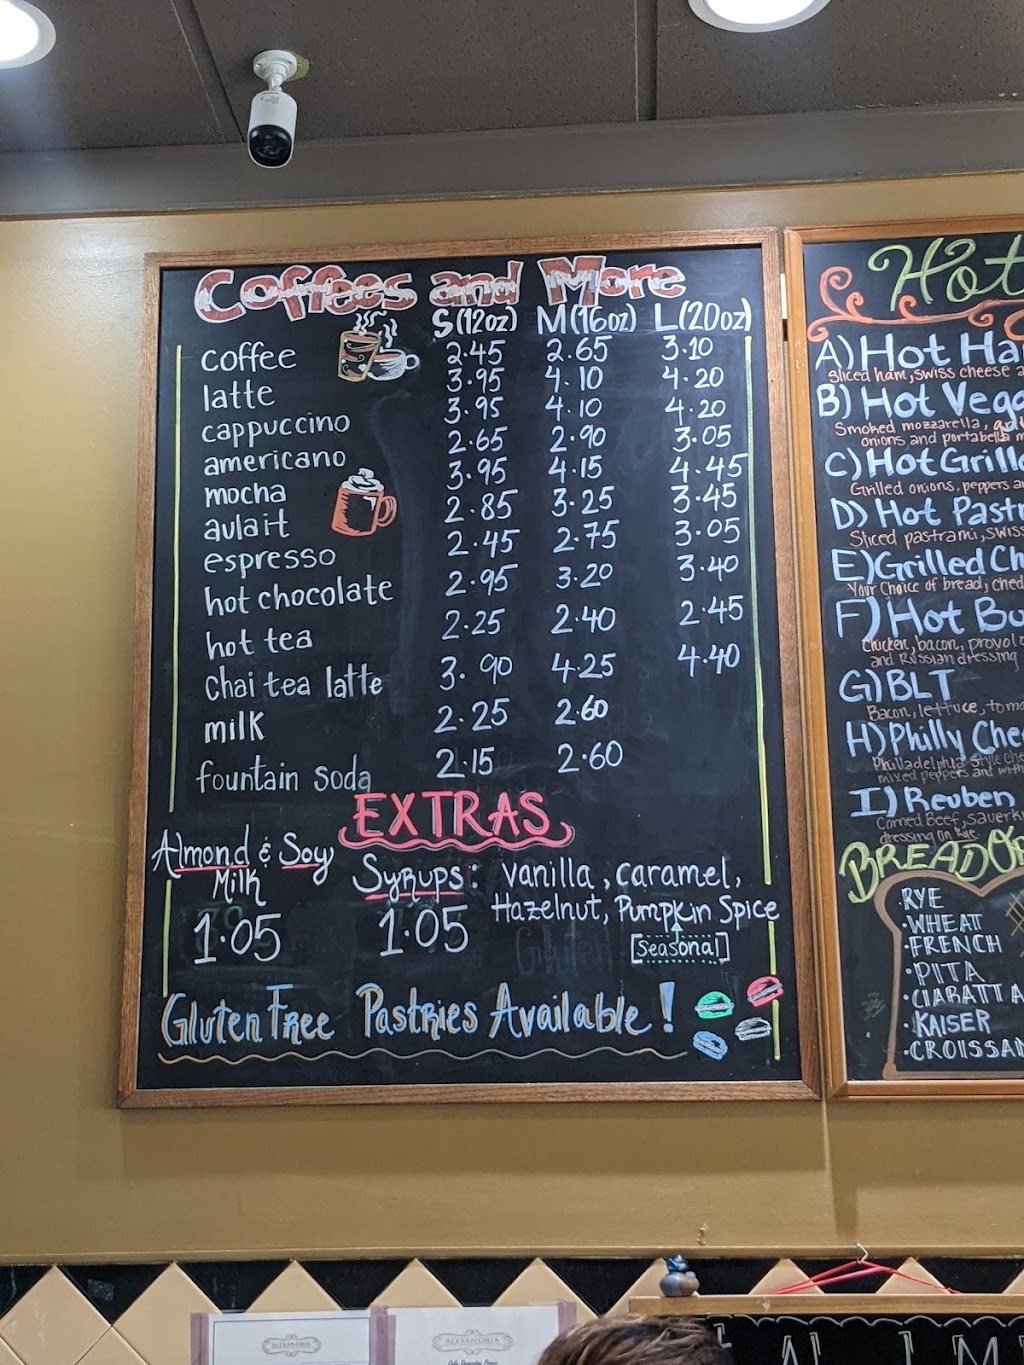 Coffees and More
S(12oz) M(16oz) L(20oz)
coffee 2.45 2.65 3.10
latte 3.95 4.10 4.20
cappuccino 3.95 4.10 4.20
americano 2.65 2.90 3.05
mocha 3.95 4.15 4.45
aulait 2.85 3.25 3.45
espresso 2.45 2.75 3.05
hot chocolate 2.95 3.20 3.40
hot tea 2.25 2.40 2.45
chai tea latte 3.90 4.25 4.40
milk 2.25 2.60
fountain soda 2.15 2.60
EXTRAS
Almond & Soy
Milk
1.05
Syrups: vanilla, caramel,
Hazelnut, Pumpkin Spice
[seasonal]
1.05
Gluten Free Pastries Available!
Hot
A) Hot Ha
Sliced ham, swiss cheese
B) Hot Veg
Smoked mozzarella,
onions and portabella
C) Hot Grill
Grilled onions, peppers
D) Hot Past
Sliced pastrami, swiss
E) Grilled Ch
Your choice of bread, ched
F) Hot Bu
Chicken, bacon, provol
and Russian dressing
G) BLT
Bacon, lettuce, tom
H) Philly Che
Philladelphia style che
mixed peppers and with
I) Reuben
Corned Beef, sauerk
dressing on Rye
BREAD O
·RYE
·WHEAT
·FRENCH
·PITA
·CIABATTA
·KAISER
·CROISSAN
ALEXANDRIA
ALEXANDRIA